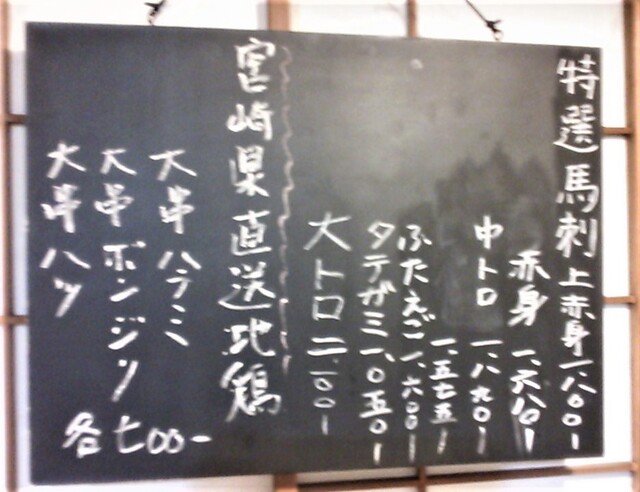 特選馬刺 上赤身 一、八〇〇ー
赤身 一、六八〇ー
中トロ 一、八九〇ー
一、五七五ー
ふたえご 一、六〇〇ー
タテガミ 一、〇五〇ー
大トロ 二、一〇〇ー
宮崎県直送地鶏
大串 ハラミ
大串 ボンジリ
大串 ハツ
各七00ー